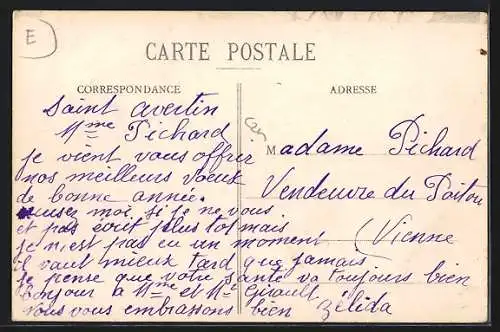 E
CARTE POSTALE
CORRESPONDANCE
Saint Avertin
Mme Pichard
je vient vous offrir
nos meilleurs voeux
de bonne année.
excusez moi si je ne vous
et pas ecrit plus tot mais
je n'est pas eu un moment
il vaut mieux tard que jamais
je pense que votre santé va toujours bien
bonjour a Mme et Mr Girault
vous vous embrassons bien Zélida
ADRESSE
Madame Pichard
Vendeuvre du Poitou
(Vienne